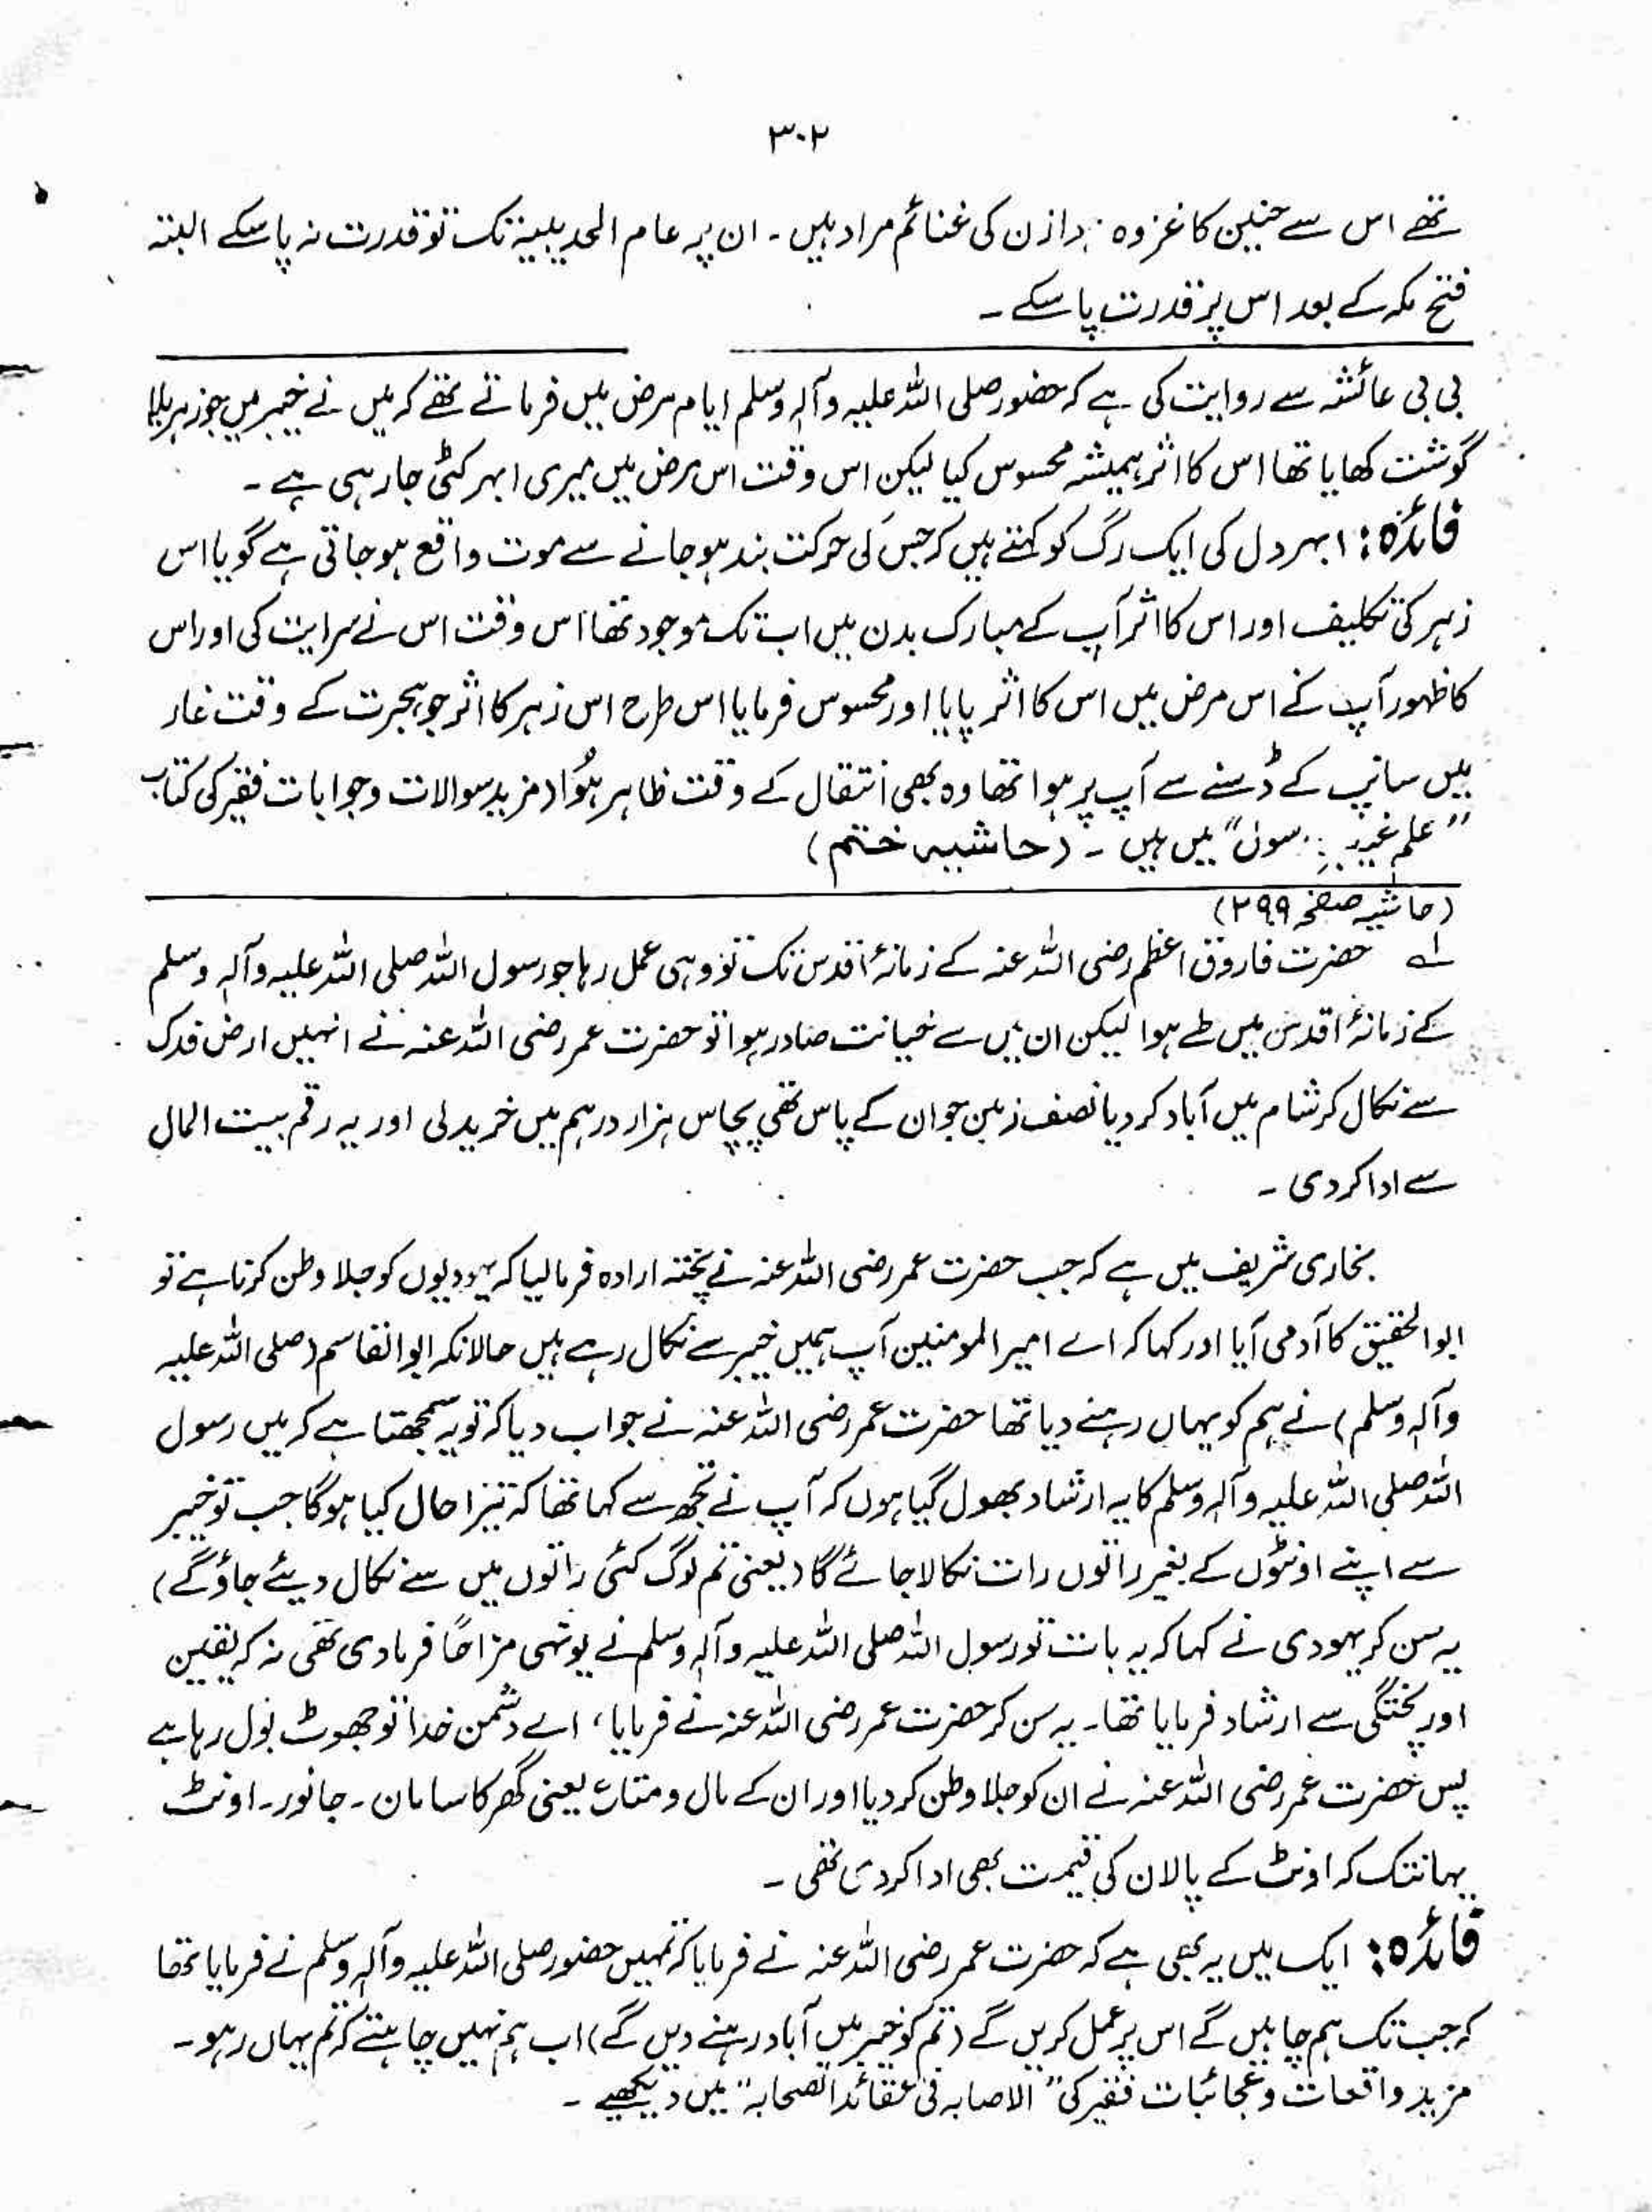 ۳۰۲
تھے اس سے حنین کا غزوہ ہوازن کی غنائم مراد ہیں ۔ ان پر عام الحدیبیۃ تک تو قدرت نہ پا سکے البتہ
فتح مکہ کے بعد اس پر قدرت پا سکے ۔
بی بی عائشہ سے روایت کی ہے کہ حضور صلی اللہ علیہ وآلہ وسلم ایام مرض میں فرماتے تھے کہ میں نے خیبر میں جو زہریلا
گوشت کھایا تھا اس کا اثر ہمیشہ محسوس کیا لیکن اس وقت اس مرض میں میری ابہر کٹی جا رہی ہے ۔
فائدہ: ابہر دل کی ایک رگ کو کہتے ہیں کہ جس کی حرکت بند ہو جانے سے موت واقع ہو جاتی ہے گویا اس
زہر کی تکلیف اور اس کا اثر آپ کے مبارک بدن میں اب تک موجود تھا اس وقت اس نے سرایت کی اور اس
کا ظہور آپ نے اس مرض میں اس کا اثر پایا اور محسوس فرمایا اس طرح اس زہر کا اثر جو ہجرت کے وقت غار
میں سانپ کے ڈسنے سے آپ پر ہوا تھا وہ بھی انتقال کے وقت ظاہر ہُوا (مزید سوالات وجوابات فقیر کی کتاب
”علم غیب سول“ میں ہیں ۔ (حاشیہ ختم)
(حاشیہ صفحہ ۲۹۹)
۱؎ حضرت فاروق اعظم رضی اللہ عنہ کے زمانۂ اقدس تک تو وہی عمل رہا جو رسول اللہ صلی اللہ علیہ وآلہ وسلم
کے زمانۂ اقدس میں طے ہوا لیکن ان میں سے خیانت صادر ہوا تو حضرت عمر رضی اللہ عنہ نے انہیں ارض فدک
سے نکال کر شام میں آباد کر دیا نصف زمین جو ان کے پاس تھی پچاس ہزار درہم میں خرید لی اور یہ رقم بیت المال
سے ادا کر دی ۔
بخاری شریف میں ہے کہ جب حضرت عمر رضی اللہ عنہ نے پختہ ارادہ فرما لیا کہ یہودیوں کو جلا وطن کرنا ہے تو
ابوالحقیق کا آدمی آیا اور کہا کہ اے امیر المومنین آپ ہمیں خیبر سے نکال رہے ہیں حالانکہ ابوالقاسم (صلی اللہ علیہ
وآلہ وسلم) نے ہم کو یہاں رہنے دیا تھا حضرت عمر رضی اللہ عنہ نے جواب دیا کہ تو یہ سمجھتا ہے کہ میں رسول
اللہ صلی اللہ علیہ وآلہ وسلم کا یہ ارشاد بھول گیا ہوں کہ آپ نے تجھ سے کہا تھا کہ تیرا حال کیا ہوگا جب تو خیبر
سے اپنے اونٹوں کے بغیر راتوں رات نکالا جائے گا (یعنی تم لوگ کئی راتوں میں سے نکال دیئے جاؤ گے)
یہ سن کر یہودی نے کہا کہ یہ بات تو رسول اللہ صلی اللہ علیہ وآلہ وسلم نے یونہی مزاحًا فرما دی تھی نہ کہ یقین
اور پختگی سے ارشاد فرمایا تھا ۔ یہ سن کر حضرت عمر رضی اللہ عنہ نے فرمایا ، اے دشمن خدا تو جھوٹ بول رہا ہے
پس حضرت عمر رضی اللہ عنہ نے ان کو جلا وطن کر دیا اور ان کے مال و متاع یعنی گھر کا سامان ۔ جانور ۔ اونٹ
یہانتک کہ اونٹ کے پالان کی قیمت بھی ادا کر دی تھی ۔
فائدہ: ایک میں یہ بھی ہے کہ حضرت عمر رضی اللہ عنہ نے فرمایا کہ تمہیں حضور صلی اللہ علیہ وآلہ وسلم نے فرمایا تھا
کہ جب تک ہم چاہیں گے اس پر عمل کریں گے (تم کو خیبر میں آباد رہنے دیں گے) اب ہم نہیں چاہتے کہ تم یہاں رہو ۔
مزید واقعات و عجائبات فقیر کی ”الاصابہ فی عقائد الصحابہ“ میں دیکھیے ۔